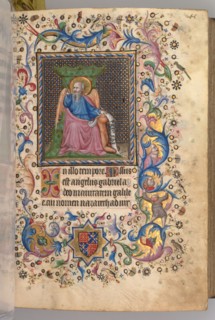 In illo tempore Missus
est angelus gabriel a
deo in civitatem galile
e cui nomen nazareth ad vir